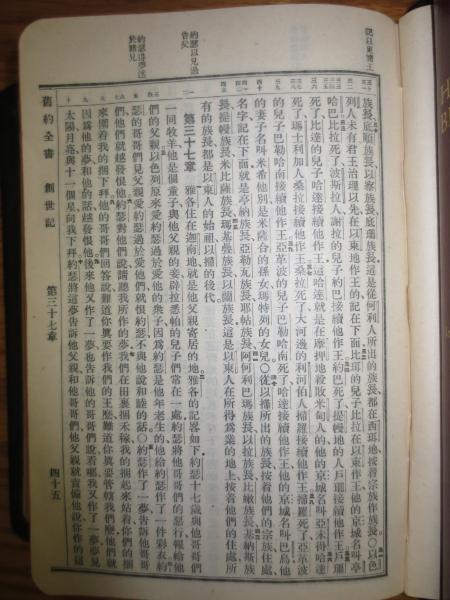 記以東諸王
約瑟以兄過
告父
約瑟得夢述
於諸兄
族長底順族長以察族長底珊族長這是從何利人所出的族長都在西珥地按着宗族作族長〇以色
列人未有君王治理以先在以東地作王的記在下面比珥的兒子比拉在以東作王他的京城名叫亭
哈巴比拉死了波斯拉人謝拉的兒子約巴接續他作王約巴死了提幔地的人戶珊接續他作王戶珊
死了比達的兒子哈達接續他作王這哈達就是在摩押地殺敗米甸人的他的京城名叫亞未得哈達
死了瑪士利加人桑拉接續他作王桑拉死了大河邊的利河伯人掃羅接續他作王掃羅死了亞革波
的兒子巴勒哈南接續他作王亞革波的兒子巴勒哈南死了哈達接續他作王他的京城名叫巴烏他
的妻子名叫米希他別是米薩合的孫女瑪特列的女兒〇從以掃所出的族長按着他們的宗族住處
名字記在下面就是亭納族長亞勒瓦族長耶帖族長阿何利巴瑪族長以拉族長比嫩族長基納斯族
長提幔族長米比薩族長瑪基疊族長以蘭族長這是以東人在所得為業的地上按着他們的住處所
有的族長都是以東人的始祖以掃的後代
第三十七章 雅各住在迦南地就是他父親寄居的地雅各的記畧如下約瑟十七歲與他哥哥們
一同牧羊他是個童子與他父親的妾辟拉悉帕的兒子們常在一處約瑟將他哥哥們的惡行報給他
們的父親以色列原來愛約瑟過於愛他的衆子因為約瑟是他年老生的他給約瑟作了一件彩衣約
瑟的哥哥們見父親愛約瑟過於愛他們就恨約瑟不與他說和睦的話〇約瑟作了一夢告訴他哥哥
們他們就越發恨他約瑟對他們說請聽我所作的夢我們在田裏捆禾稼我的捆起來站着你們的捆
來圍着我的捆下拜他的哥哥們回答說難道你真要作我們的王麼難道你真要管轄我們麼他們就
因為他的夢和他的話越發恨他後來他又作了一夢也告訴他的哥哥們說看哪我又作了一夢夢見
太陽月亮與十一個星向我下拜約瑟將這夢告訴他父親和他哥哥們他父親就責備他說你作的這
舊約全書 創世記 第三十七章 四十五